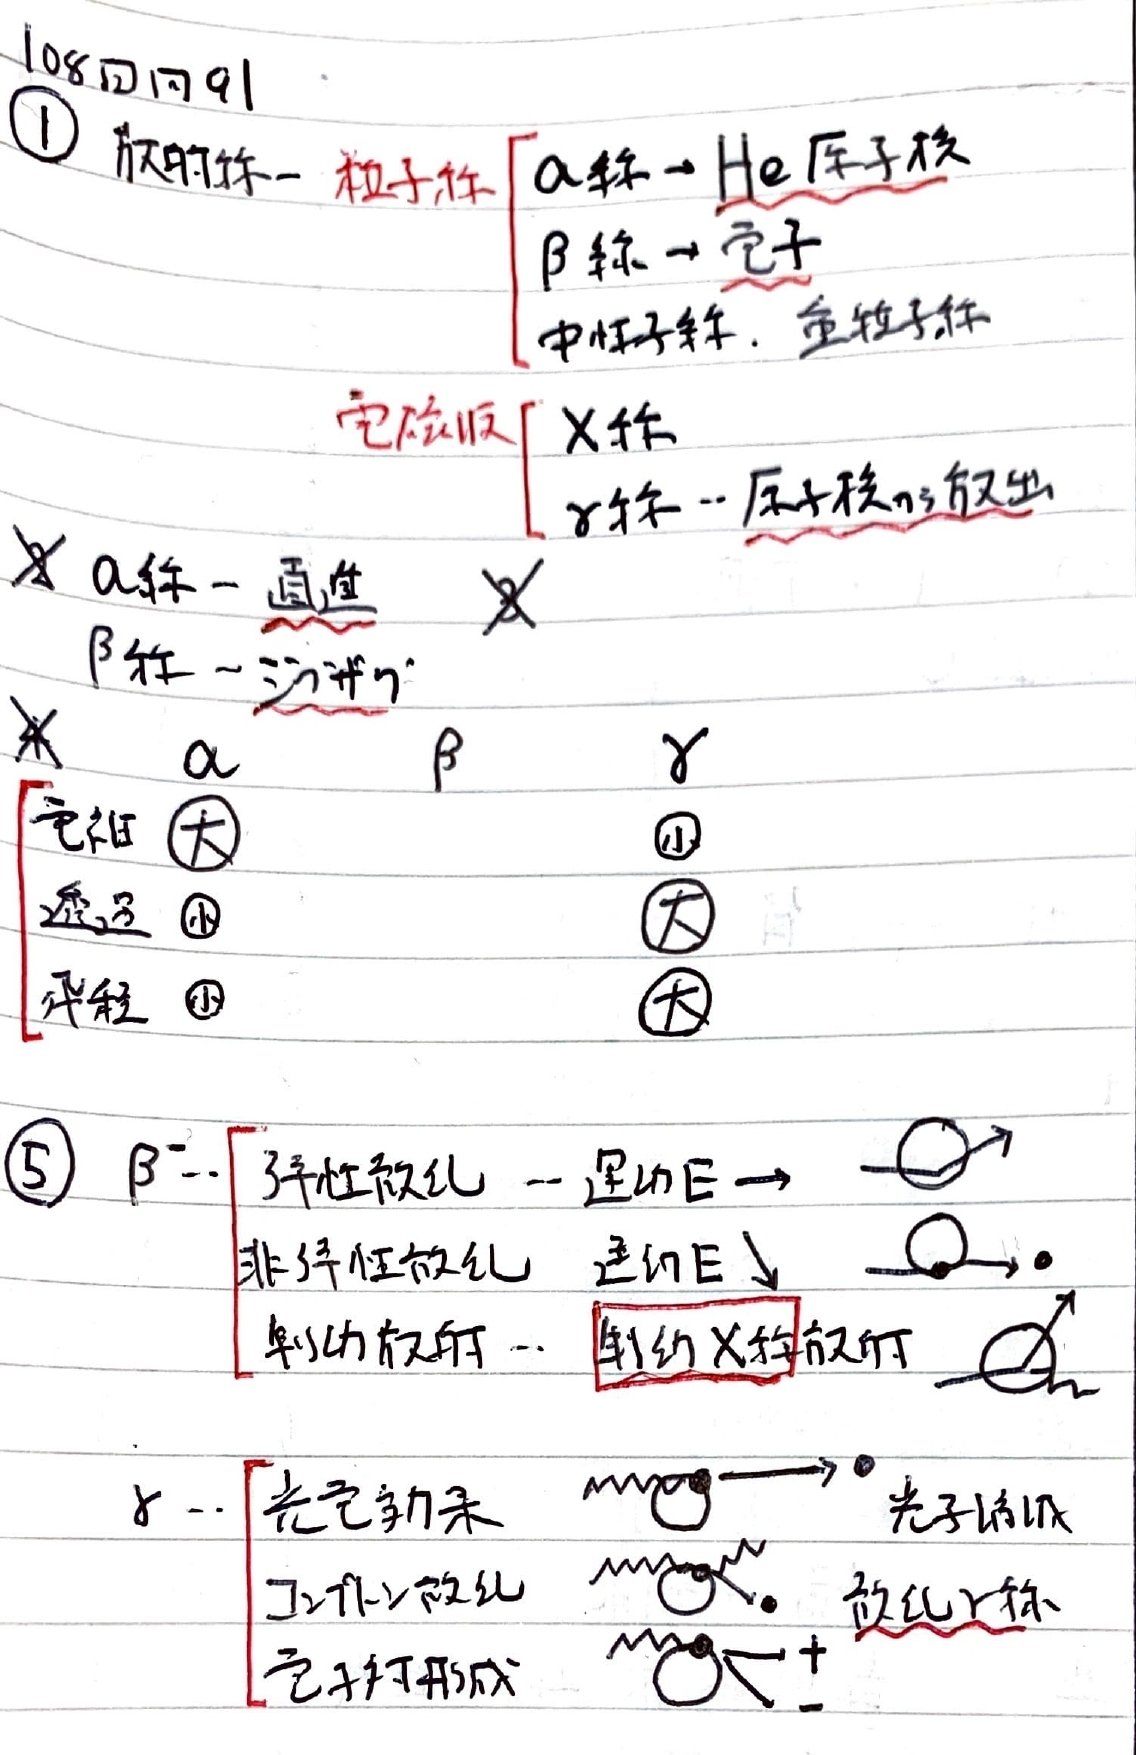 108回問91
① 放射線ー粒子線 α線→He原子核
β線→電子
中性子線. 重粒子線
電磁波 X線
γ線‥原子核から放出
α線ー直進
β線~ジグザグ
α β γ
電離 大 小
透過 小 大
飛程 小 大
⑤ β⁻‥ 弾性散乱 ‥運動E→
非弾性散乱 運動E↘
制動放射‥ 制動X線放射
γ‥ 光電効果 光子消滅
コンプトン散乱 散乱γ線
電子対形成 + -